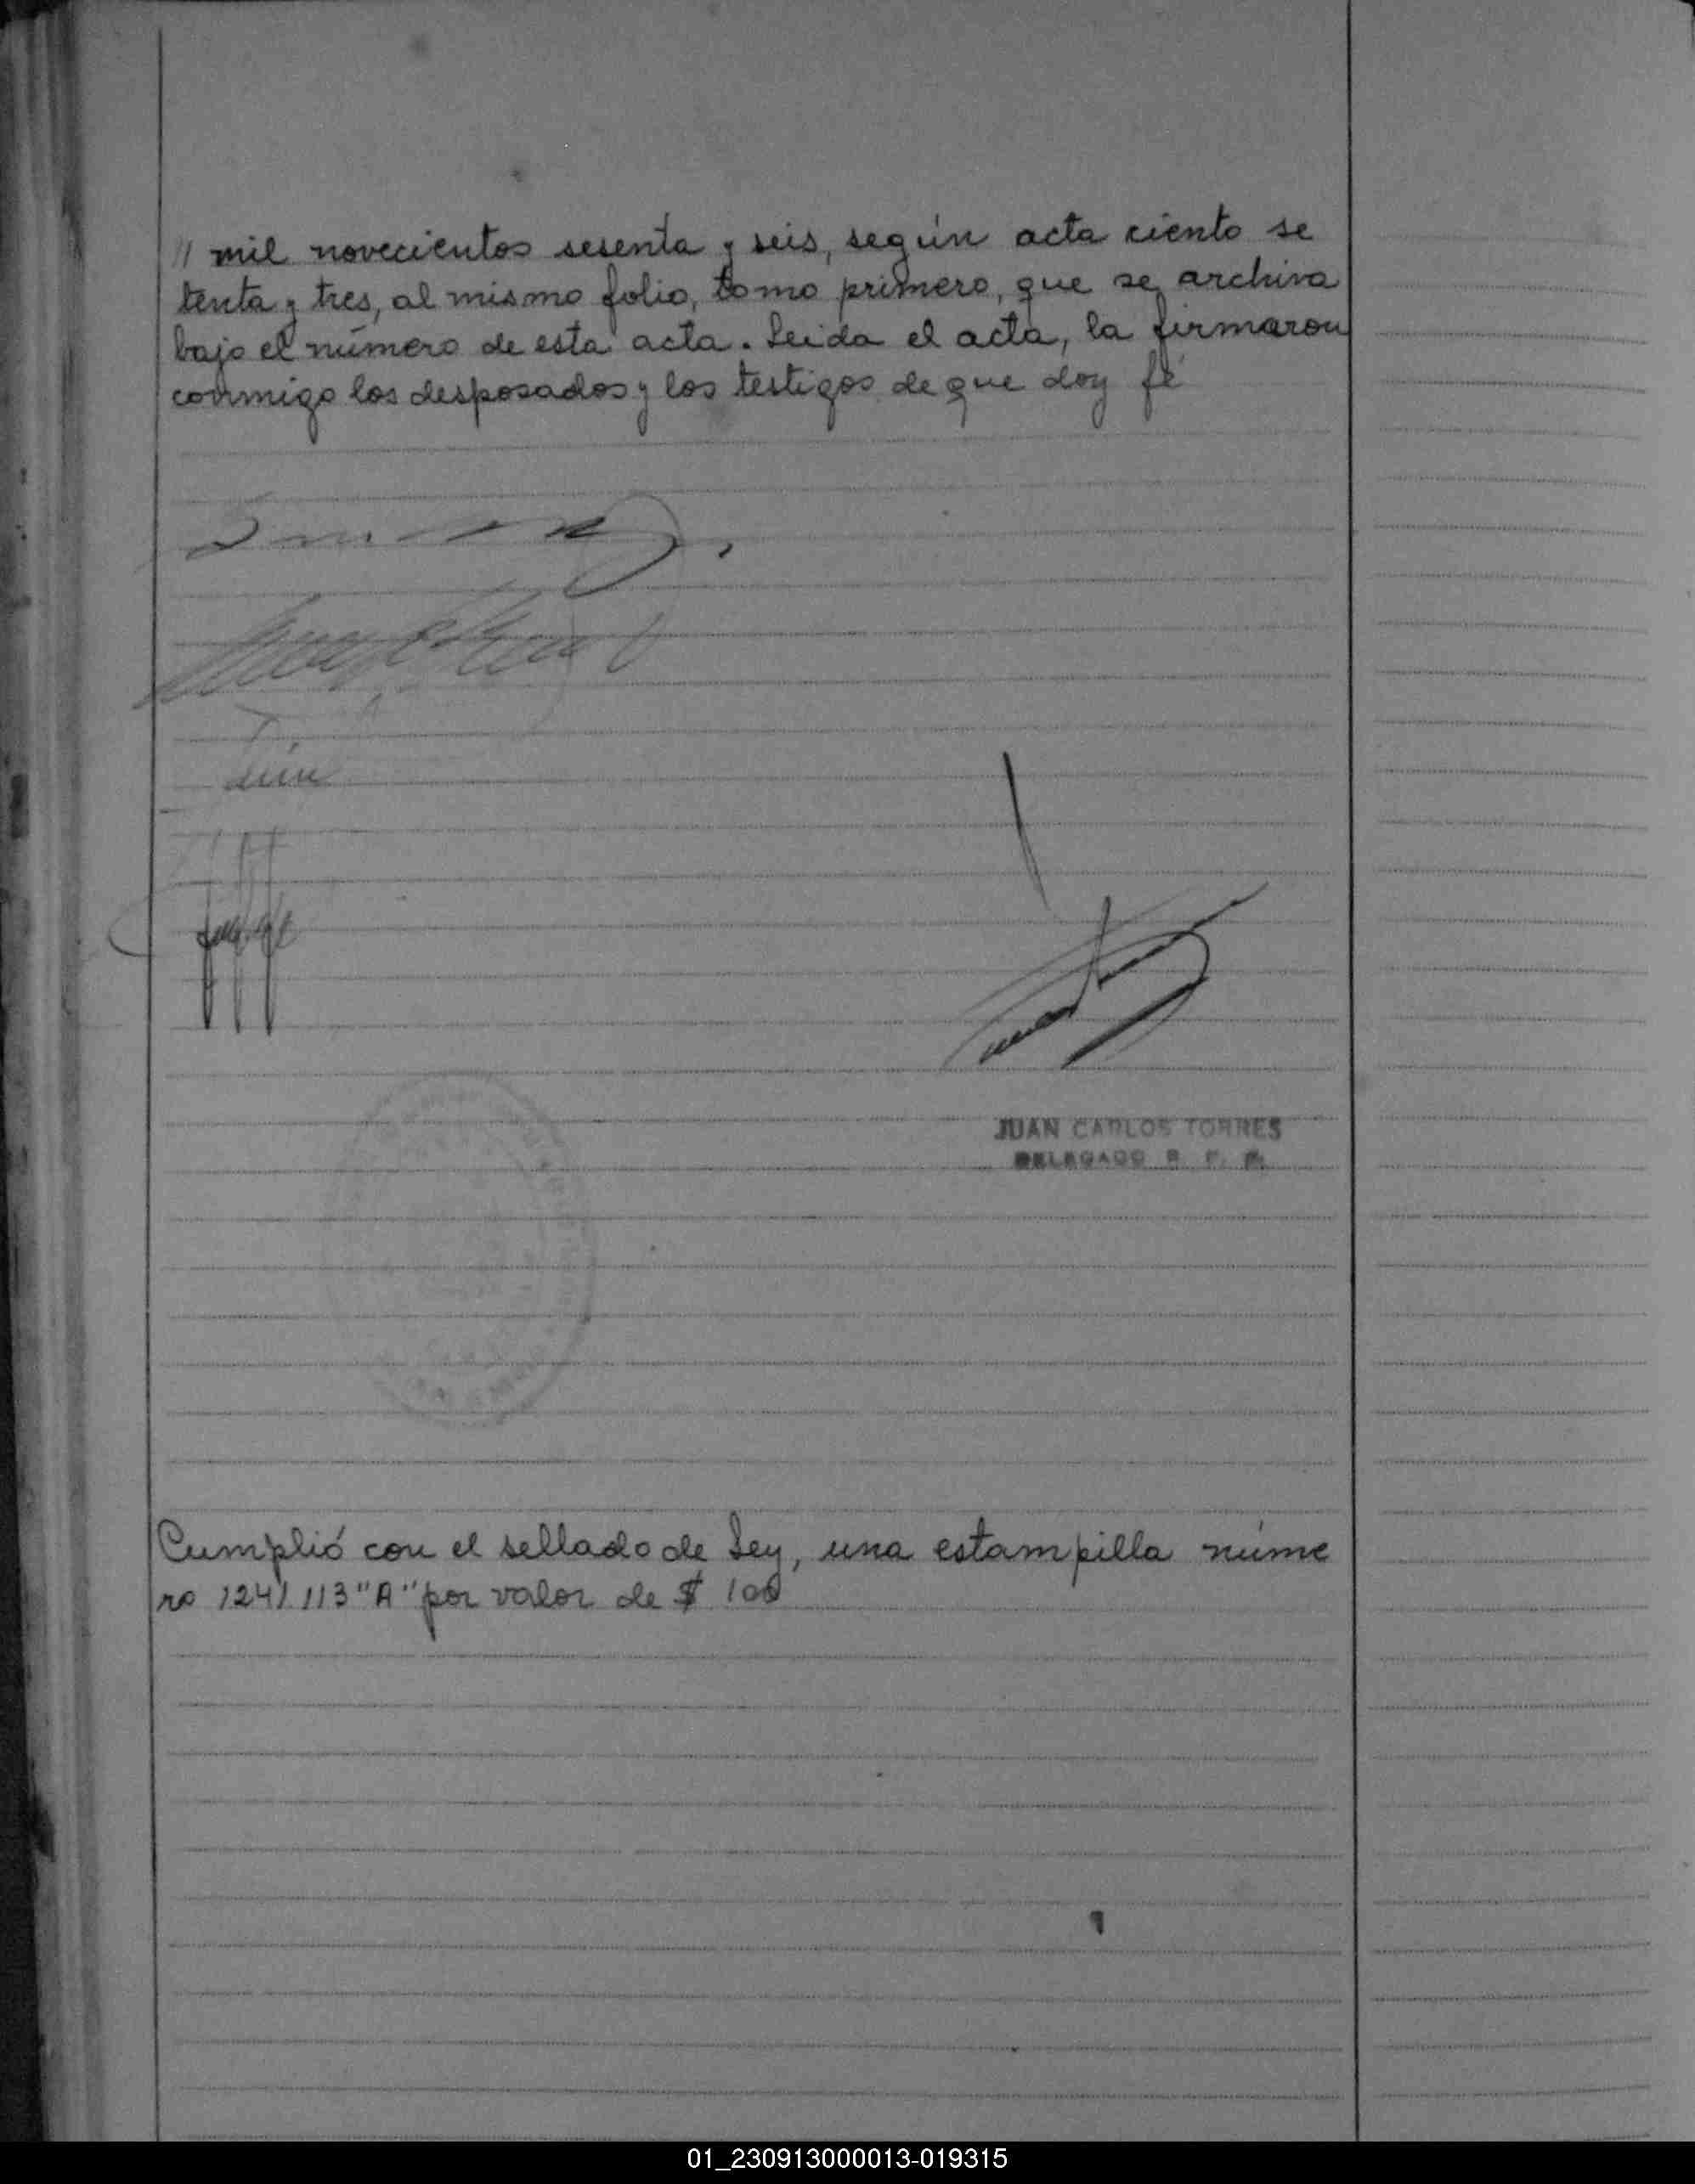 // mil novecientos sesenta y seis, según acta ciento se
tenta y tres, al mismo folio, tomo primero, que se archiva
bajo el número de esta acta. Leida el acta, la firmaron
conmigo los desposados y los testigos de que doy fé
JUAN CARLOS TORRES
DELEGADO
Cumplió con el sellado de Ley, una estampilla núme
ro 1241113 "A" por valor de $ 100
01_230913000013-019315